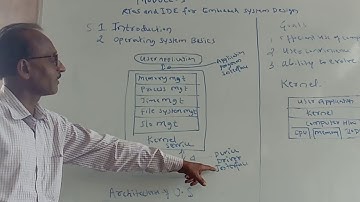 RTOS and IDE for Embedded System Design
5.1 Introduction
2 Operating System Basics
User Application
Application
Program
Interface
Memory mgt
Process mgt
Time mgt
File System mgt
I/o mgt
Kernel
Service
Device
Driver
Interface
Architecture
Goals
2 User convenience
3 ability to evolve
Kernel
User Application
Kernel
Computer H/w
CPU
memory